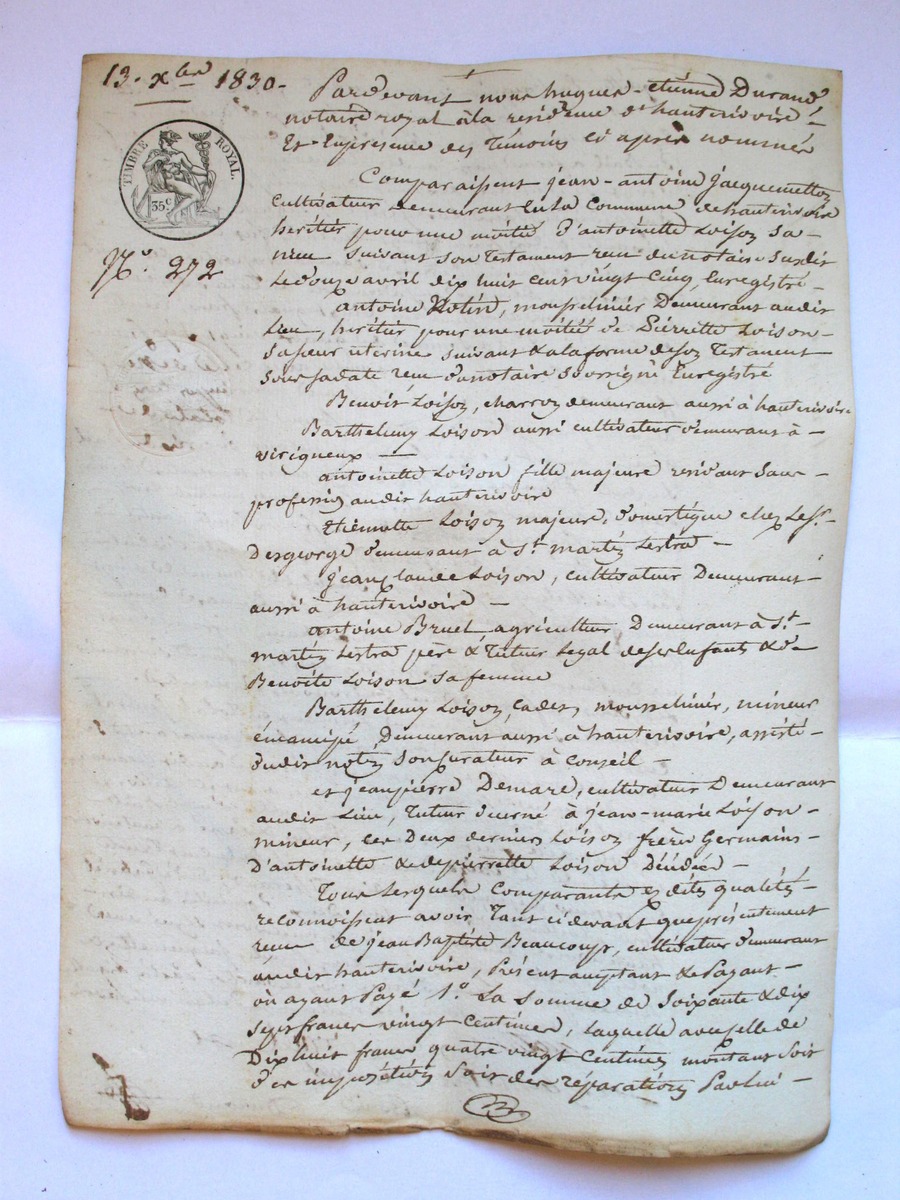 13. xbre 1830-
Pardevant nous hugues-étienne Durand
notaire royal à la residence d'hauterivoire
Et En presence des Temoins ci après nommés
TIMBRE ROYAL.
35c
Comparaissent jean-antoine jacquemetton
cultivateur Demeurant En la Commune de hauterivoire
heritier pour une moitié d'antoinette Loison sa
nièce suivant son Testament recu du notaire susdit
Le douze avril dix huit cent vingt Cinq, Enregistré
No. 272
antoine Notin, mousselinier Demeurant audit
Lieu, heritier pour une moitié de Pierrette Loison-
sa sœur uterine suivant & à la forme de son Testament
sous sa date recu du notaire soussigné Enregistré
Benoit Loison, charron demeurant aussi à hauterivoire
Barthelemy Loison aussi cultivateur demeurant à-
virigneux —
antoinette Loison fille majeure residant sans-
profession audit hauterivoire
Etiennette Loison majeure, domestique chez Le sr.-
Desgeorge demeurant à St. martin Lestra —
jean claude Loison, cultivateur Demeurant-
aussi à hauterivoire —
antoine Bruel, agriculteur Demeurant à St.-
martin Lestra père & Tuteur Legal de ses Enfants & de
Benoite Loison sa femme
Barthelemy Loison, Cadet, mousselinier, mineur
émancipé, Demeurant aussi à hauterivoire, assisté-
dudit notin son Curateur à Conseil —
et jean pierre Demare, cultivateur Demeurant
audit Lieu, Tuteur décerné à jean-marie Loison-
mineur, Les Deux derniers Loison frères Germains-
D'antoinette & de pierrette Loison Décédées —
Tous Lesquels Comparants Es dites qualités-
reconnoissent avoir Tant ci devant que présentement
recu de jean Baptiste Beaucoup, cultivateur demeurant
audit hauterivoire, Présent acceptant & Payant —
ou ayant Payé 1o. La Somme de Soixante & dix
sept francs vingt Centimes, Laquelle avec celle de
Dix huit francs quatre vingt Centimes montant soit
des impositions soit des réparations Par lui —